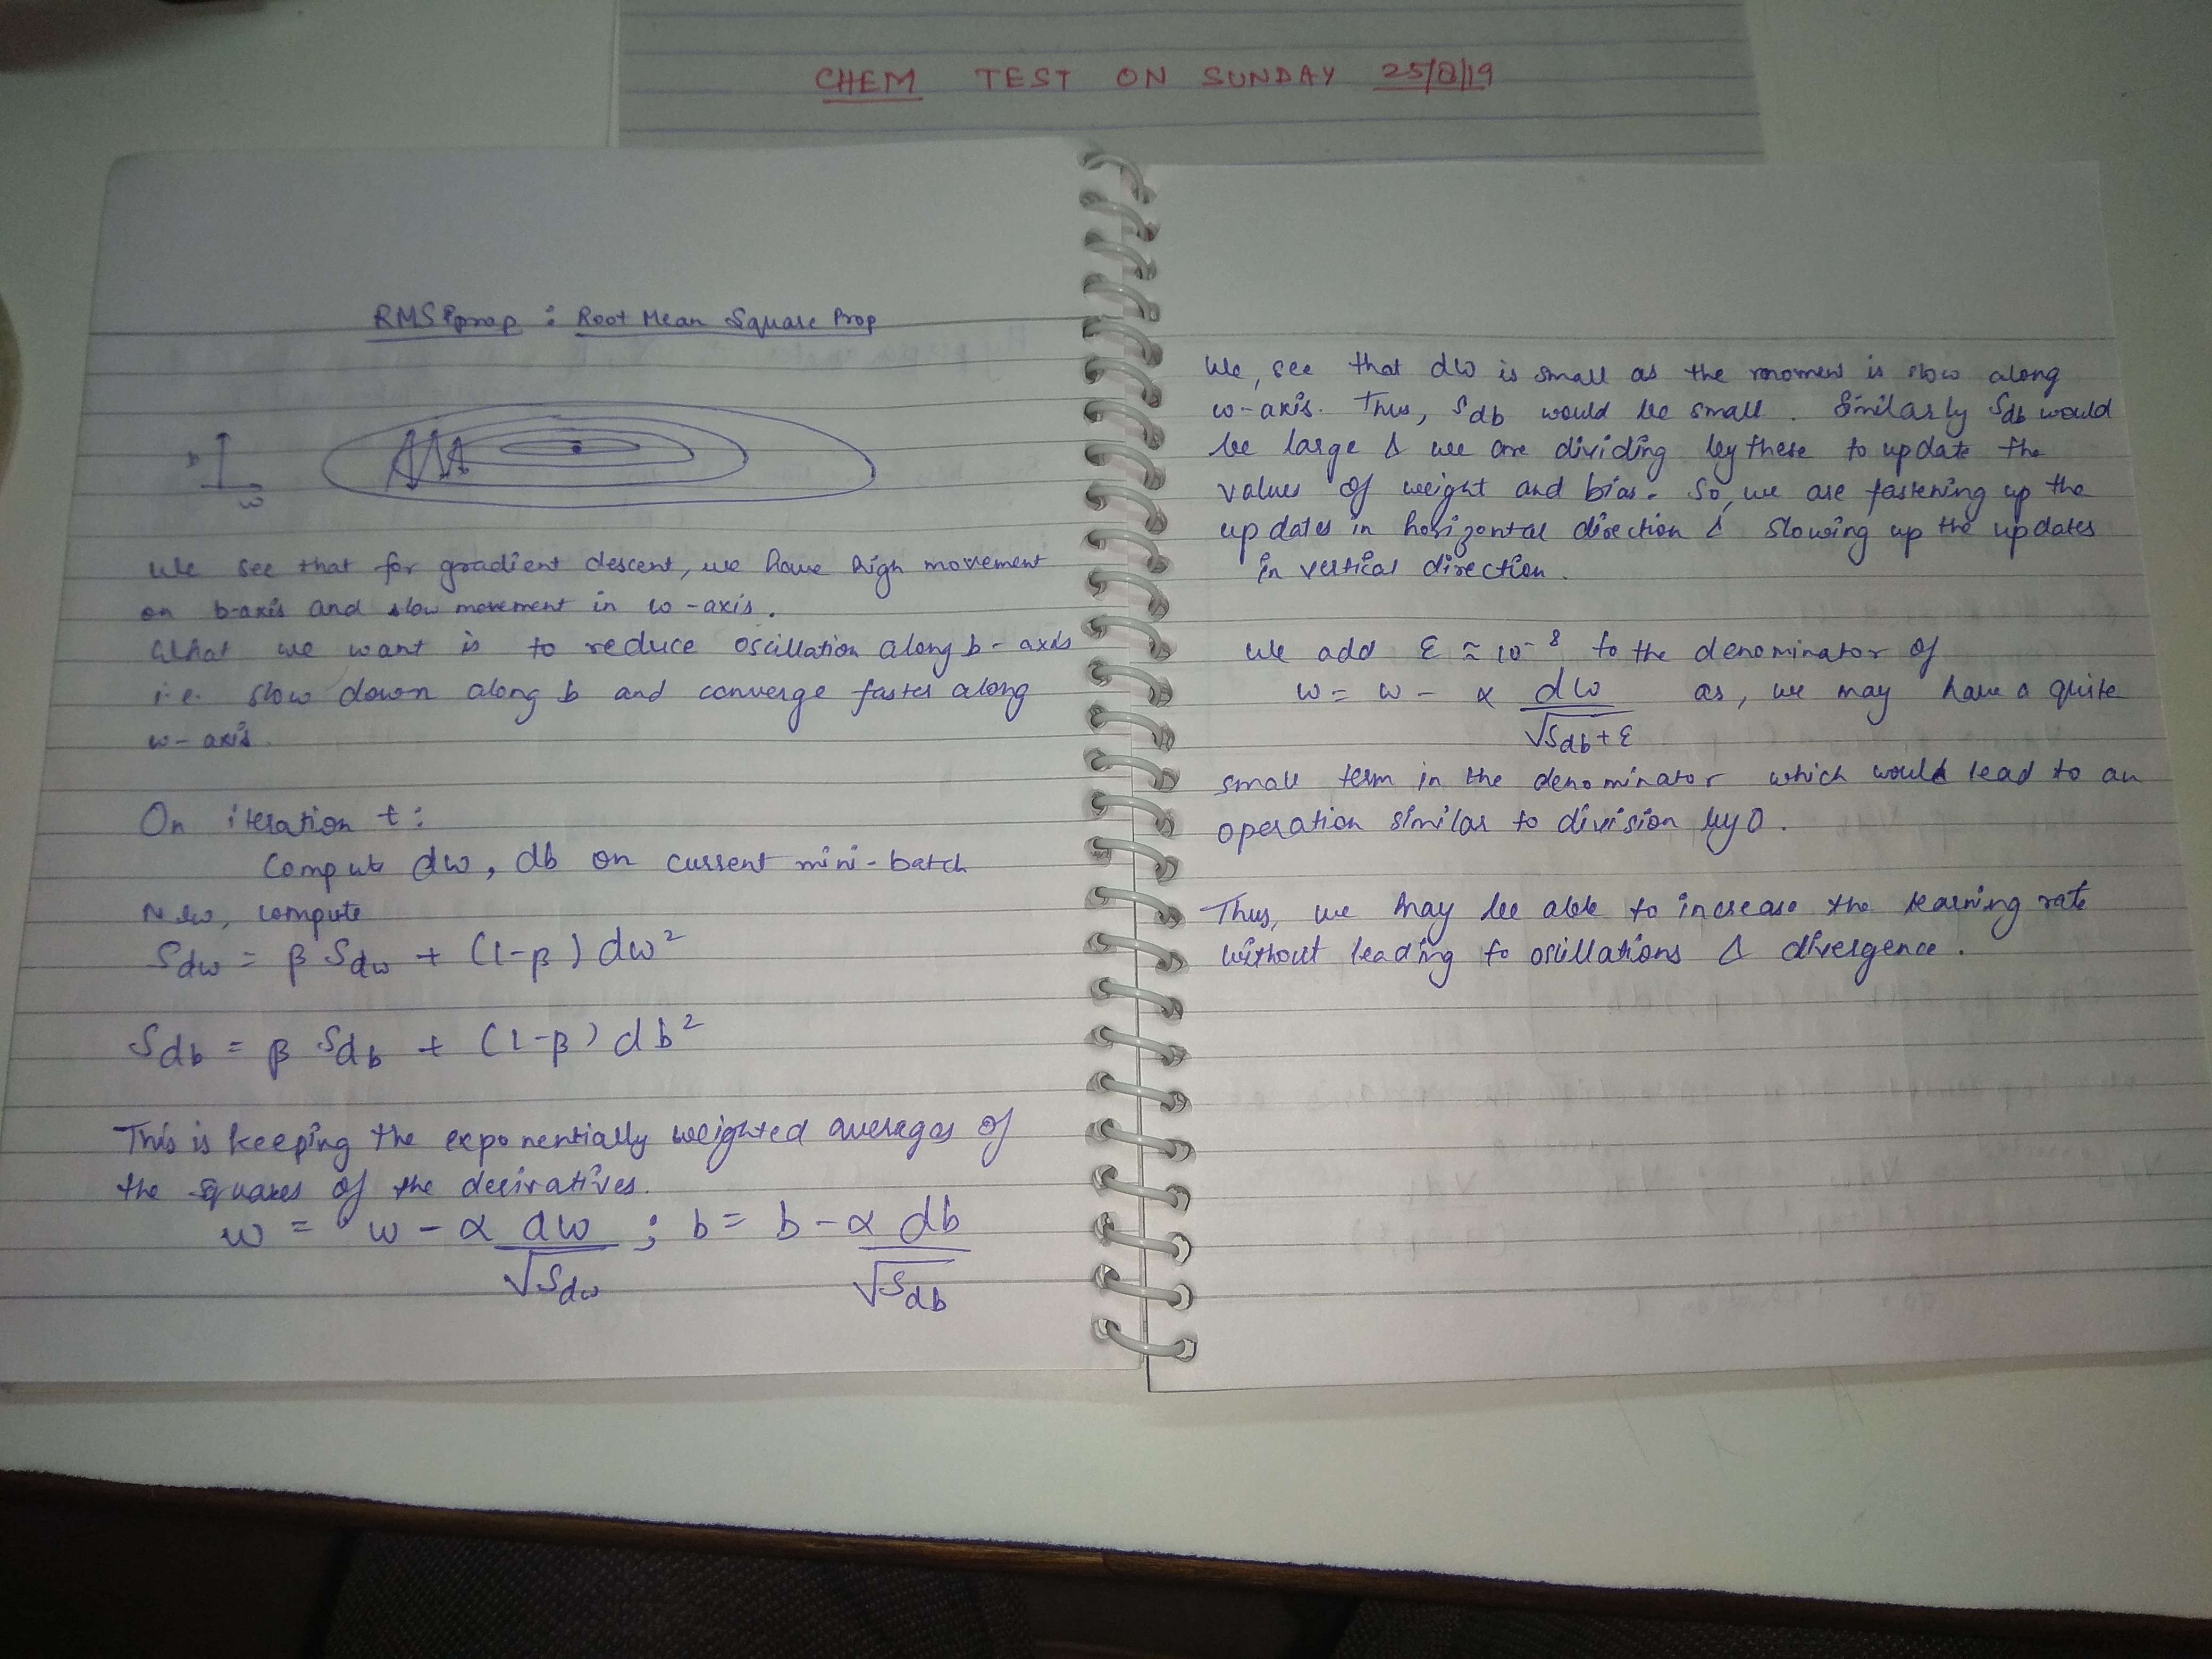 CHEM TEST ON SUNDAY 25/8/19
RMSProp : Root Mean Square Prop
b
w
We see that for gradient descent, we have high movement
on b-axis and slow movement in w-axis.
What we want is to reduce oscillation along b-axis
i.e. slow down along b and converge faster along
w-axis.
On iteration t:
Compute dw, db on current mini-batch
Now, compute
Sdw = β Sdw + (1-β) dw²
Sdb = β Sdb + (1-β) db²
This is keeping the exponentially weighted averages of
the squares of the derivatives.
w = w - α dw/√Sdw ; b = b - α db/√Sdb
We see that dw is small as the moment is slow along
w-axis. Thus, Sdb would be small. Similarly Sdb would
be large & we are dividing by these to update the
values of weight and bias. So, we are fastening up the
updates in horizontal direction & slowing up the updates
in vertical direction.
We add ε ≃ 10⁻⁸ to the denominator of
w = w - α dw/√Sdb+ε as, we may have a quite
small term in the denominator which would lead to an
operation similar to division by 0.
Thus, we may be able to increase the learning rate
without leading to oscillations & divergence.